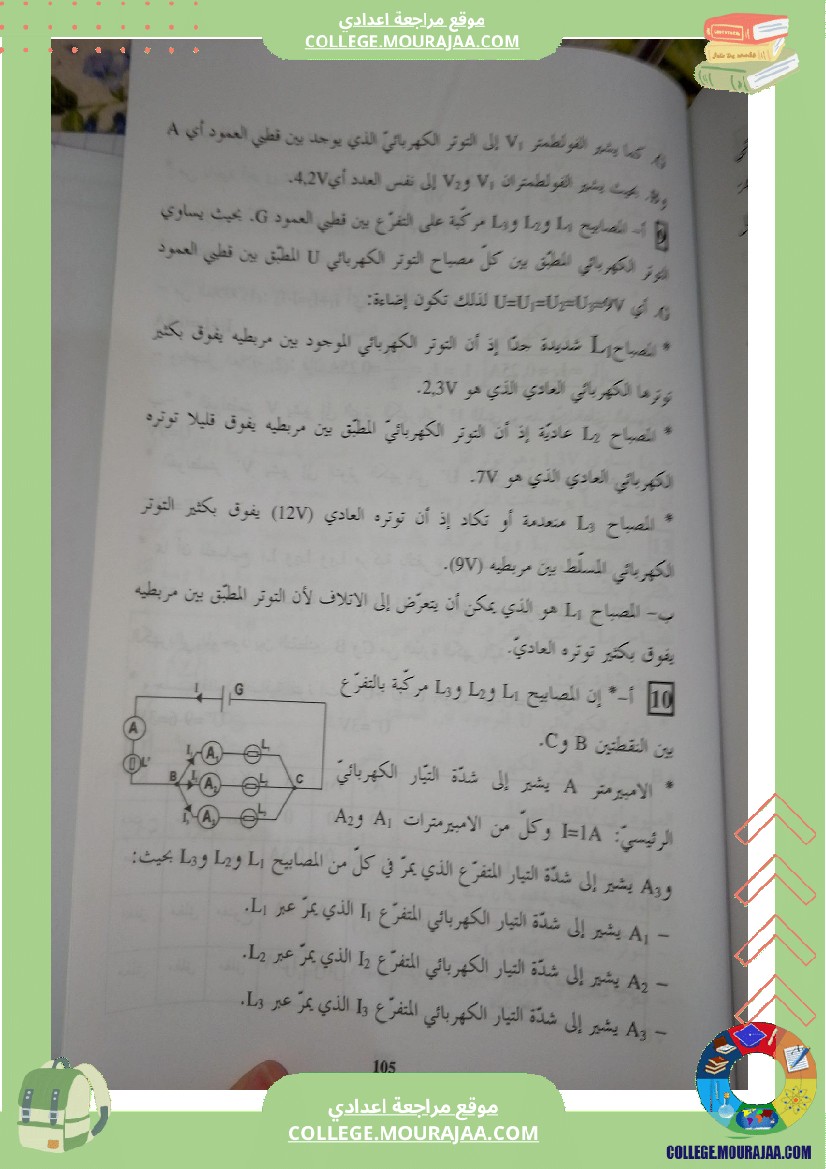 موقع مراجعة اعدادي
COLLEGE.MOURAJAA.COM
G، كما يشير الفولطمتر V1 إلى التوتر الكهربائيّ الذي يوجد بين قطبي العمود أي A
وB، بحيث يشير الفولطمتران V1 وV2 إلى نفس العدد أي 4,2V.
9 أ- المصابيح L1 وL2 وL3 مركّبة على التفرّع بين قطبي العمود G. بحيث يساوي
التوتر الكهربائي المطبّق بين كلّ مصباح التوتر الكهربائي U المطبّق بين قطبي العمود
G، أي U=U1=U2=U3=9V لذلك تكون إضاءة:
* المصباح L1 شديدة جدّا إذ أن التوتر الكهربائي الموجود بين مربطيه يفوق بكثير
توترها الكهربائي العادي الذي هو 2,3V.
* المصباح L2 عاديّة إذ أن التوتر الكهربائيّ المطبّق بين مربطيه يفوق قليلا توتره
الكهربائي العادي الذي هو 7V.
* المصباح L3 منعدمة أو تكاد إذ أن توتره العادي (12V) يفوق بكثير التوتر
الكهربائي المسلّط بين مربطيه (9V).
ب- المصباح L1 هو الذي يمكن أن يتعرّض إلى الاتلاف لأن التوتر المطبّق بين مربطيه
يفوق بكثير توتره العاديّ.
10 أ-* إن المصابيح L1 وL2 وL3 مركّبة بالتفرّع
بين النقطتين B وC.
* الامبيرمتر A يشير إلى شدّة التيّار الكهربائيّ
الرئيسيّ: I=1A وكلّ من الامبيرمترات A1 وA2
وA3 يشير إلى شدّة التيار المتفرّع الذي يمرّ في كلّ من المصابيح L1 وL2 وL3 بحيث:
- A1 يشير إلى شدّة التيار الكهربائي المتفرّع I1 الذي يمرّ عبر L1.
- A2 يشير إلى شدّة التيار الكهربائي المتفرّع I2 الذي يمرّ عبر L2.
- A3 يشير إلى شدّة التيار الكهربائي المتفرّع I3 الذي يمرّ عبر L3.
I G
A
L'
I1 A1 L1
B I2 A2 L2 C
I3 A3
105
موقع مراجعة اعدادي
COLLEGE.MOURAJAA.COM
COLLEGE.MOURAJAA.COM